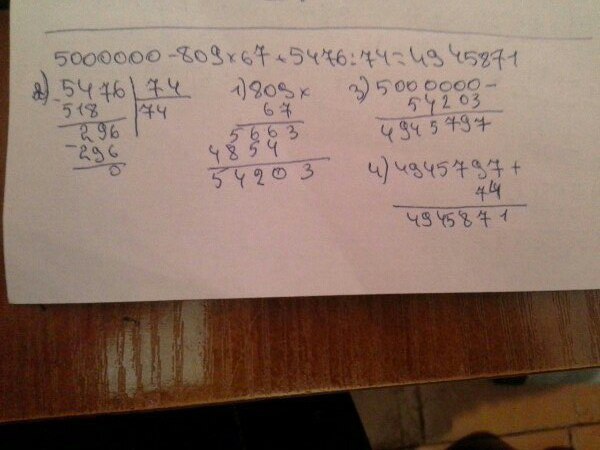 5000000-809×67+5476:74=4945871
2) 5476 | 74
- 518 | 74
296
- 296
0
1) 809 ×
67
5663
4854
54203
3) 5000000 -
54203
4945797
4) 4945797 +
74
4945871